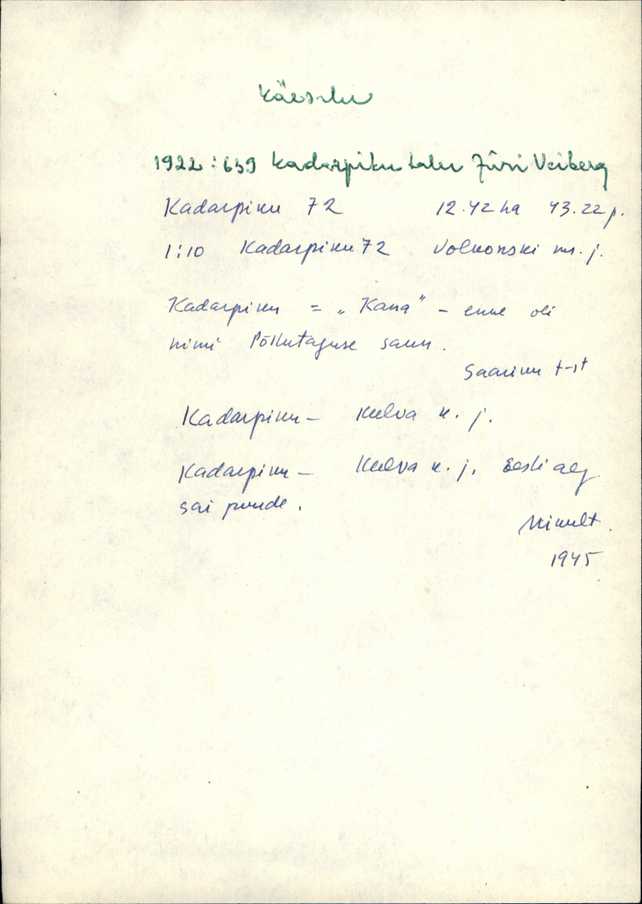 Käesalu
1922:639 Kadarpiku talu Jüri Veiberg
Kadarpiku 72 12.42 ha 43.22 p.
1:10 Kadarpiku 72 Volkonski ms. j.
Kadarpiku = „Kana" - enne oli
nimi Põllutaguse saun.
Saariku t-st
Kadarpiku - Keelva k. j.
Kadarpiku - Keelva k. j. Eesti aeg
sai puude.
1945